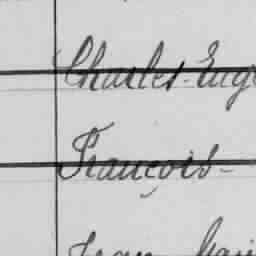 Charles-Eug
François-
Jean